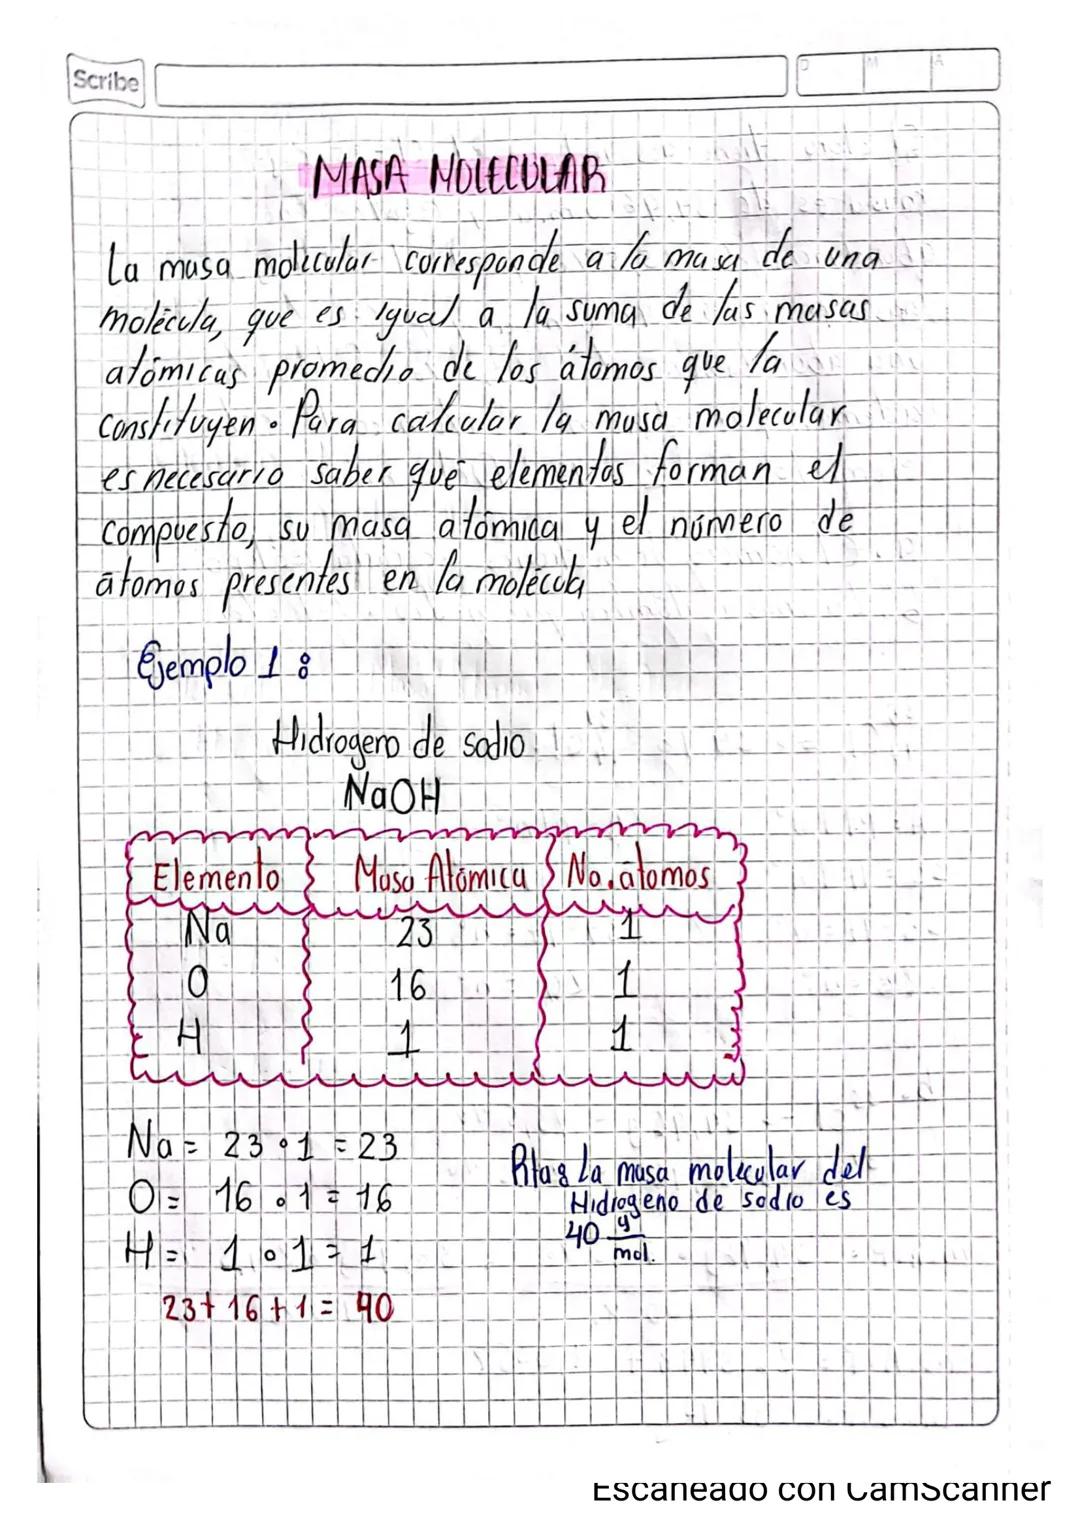 Scribe
D M A
MASA MOLECULAR
La masa molecular corresponde a la masa de una
molécula, que es igual a la suma de las masas
atómicas promedio de los átomos que la
constituyen. Para calcular la masa molecular
es necesario saber qué elementos forman el
compuesto, su masa atómica y el número de
átomos presentes en la molécula
Ejemplo 1:
Hidrogeno de sodio
NaOH
Elemento Masa Atómica No. átomos
Na 23 1
O 16 1
H 1 1
Na = 23 · 1 = 23
O = 16 · 1 = 16
H = 1 · 1 = 1
23 + 16 + 1 = 40
Rta: La masa molecular del
Hidrogeno de sodio es
40 g/mol.
Escaneado con CamScanner